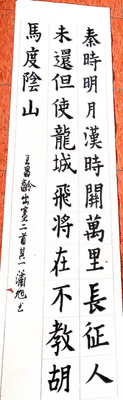 秦時明月漢時關萬里長征人
未還但使龍城飛将在不教胡
馬度陰山
王昌齡出塞二首其一瀟旭書